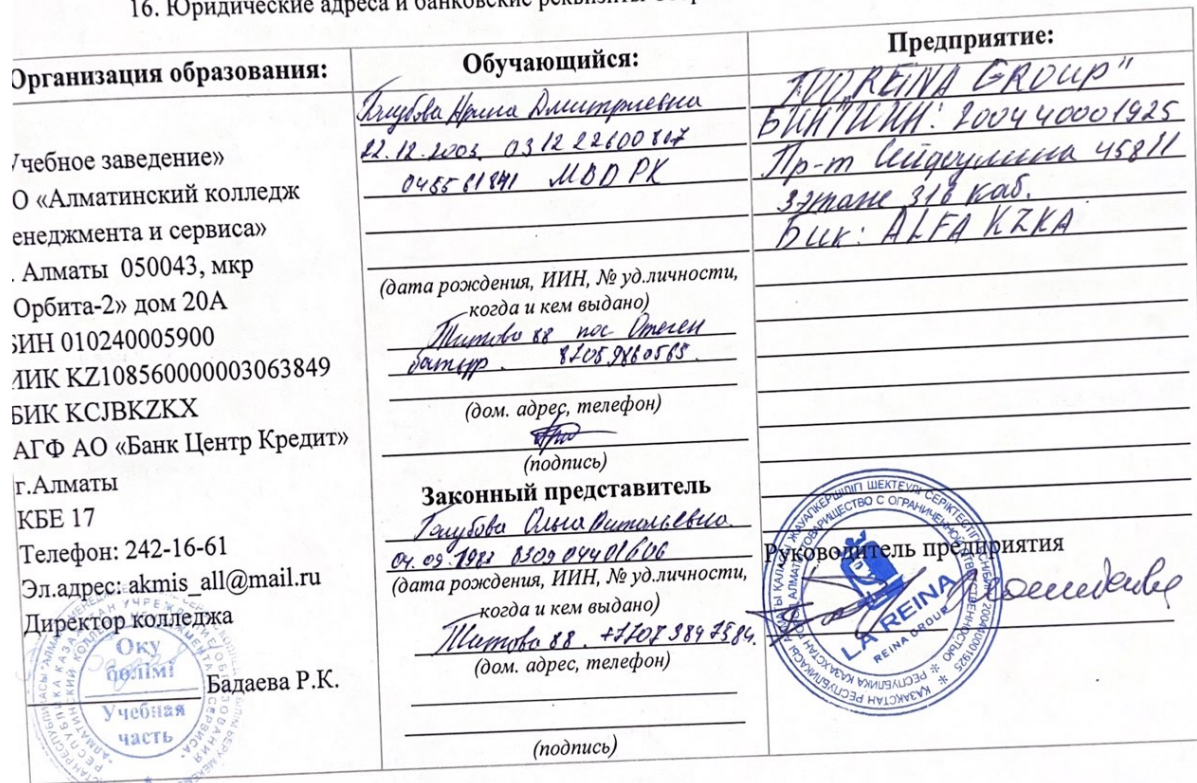 16. Юридические адреса и банковские реквизиты
Организация образования:
Учебное заведение»
О «Алматинский колледж
енеджмента и сервиса»
. Алматы 050043, мкр
Орбита-2» дом 20А
БИН 010240005900
ИИК KZ108560000003063849
БИК KCJBKZKX
АГФ АО «Банк Центр Кредит»
г.Алматы
КБЕ 17
Телефон: 242-16-61
Эл.адрес: akmis_all@mail.ru
Директор колледжа
Бадаева Р.К.
Оқу
бөлімі
Учебная
часть
Обучающийся:
Голубова Дмитриевна
22.12.2003. 03 12 22600 867
МВД РК
(дата рождения, ИИН, № уд.личности,
когда и кем выдано)
Титова 88 пос Отеген
батыр. 87059860565.
(дом. адрес, телефон)
(подпись)
Законный представитель
Голубова Ольга Витальевна.
04.09.1983 830904401606
(дата рождения, ИИН, № уд.личности,
когда и кем выдано)
Титова 88. +77073847584.
(дом. адрес, телефон)
(подпись)
Предприятие:
ТОО "REINA GROUP"
БИН/ИИН: 200440001925
Пр-т Сейфуллина 458
3этаж 316 каб.
Бик: ALFA KZKA
Руководитель предприятия
LA REINA
REINA GROUP